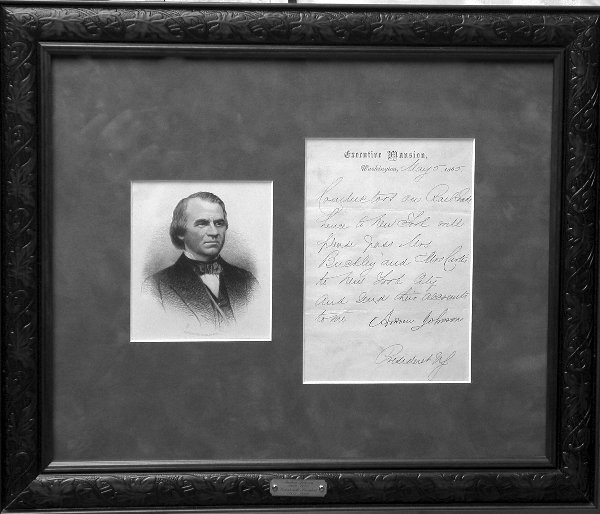 Executive Mansion,
Washington, May 5 1865
Conductors on Rail Roads
hence to New York will
please pass Mrs
Buckley and Mrs
to New York City
and send their accounts
to me Andrew Johnson
President US